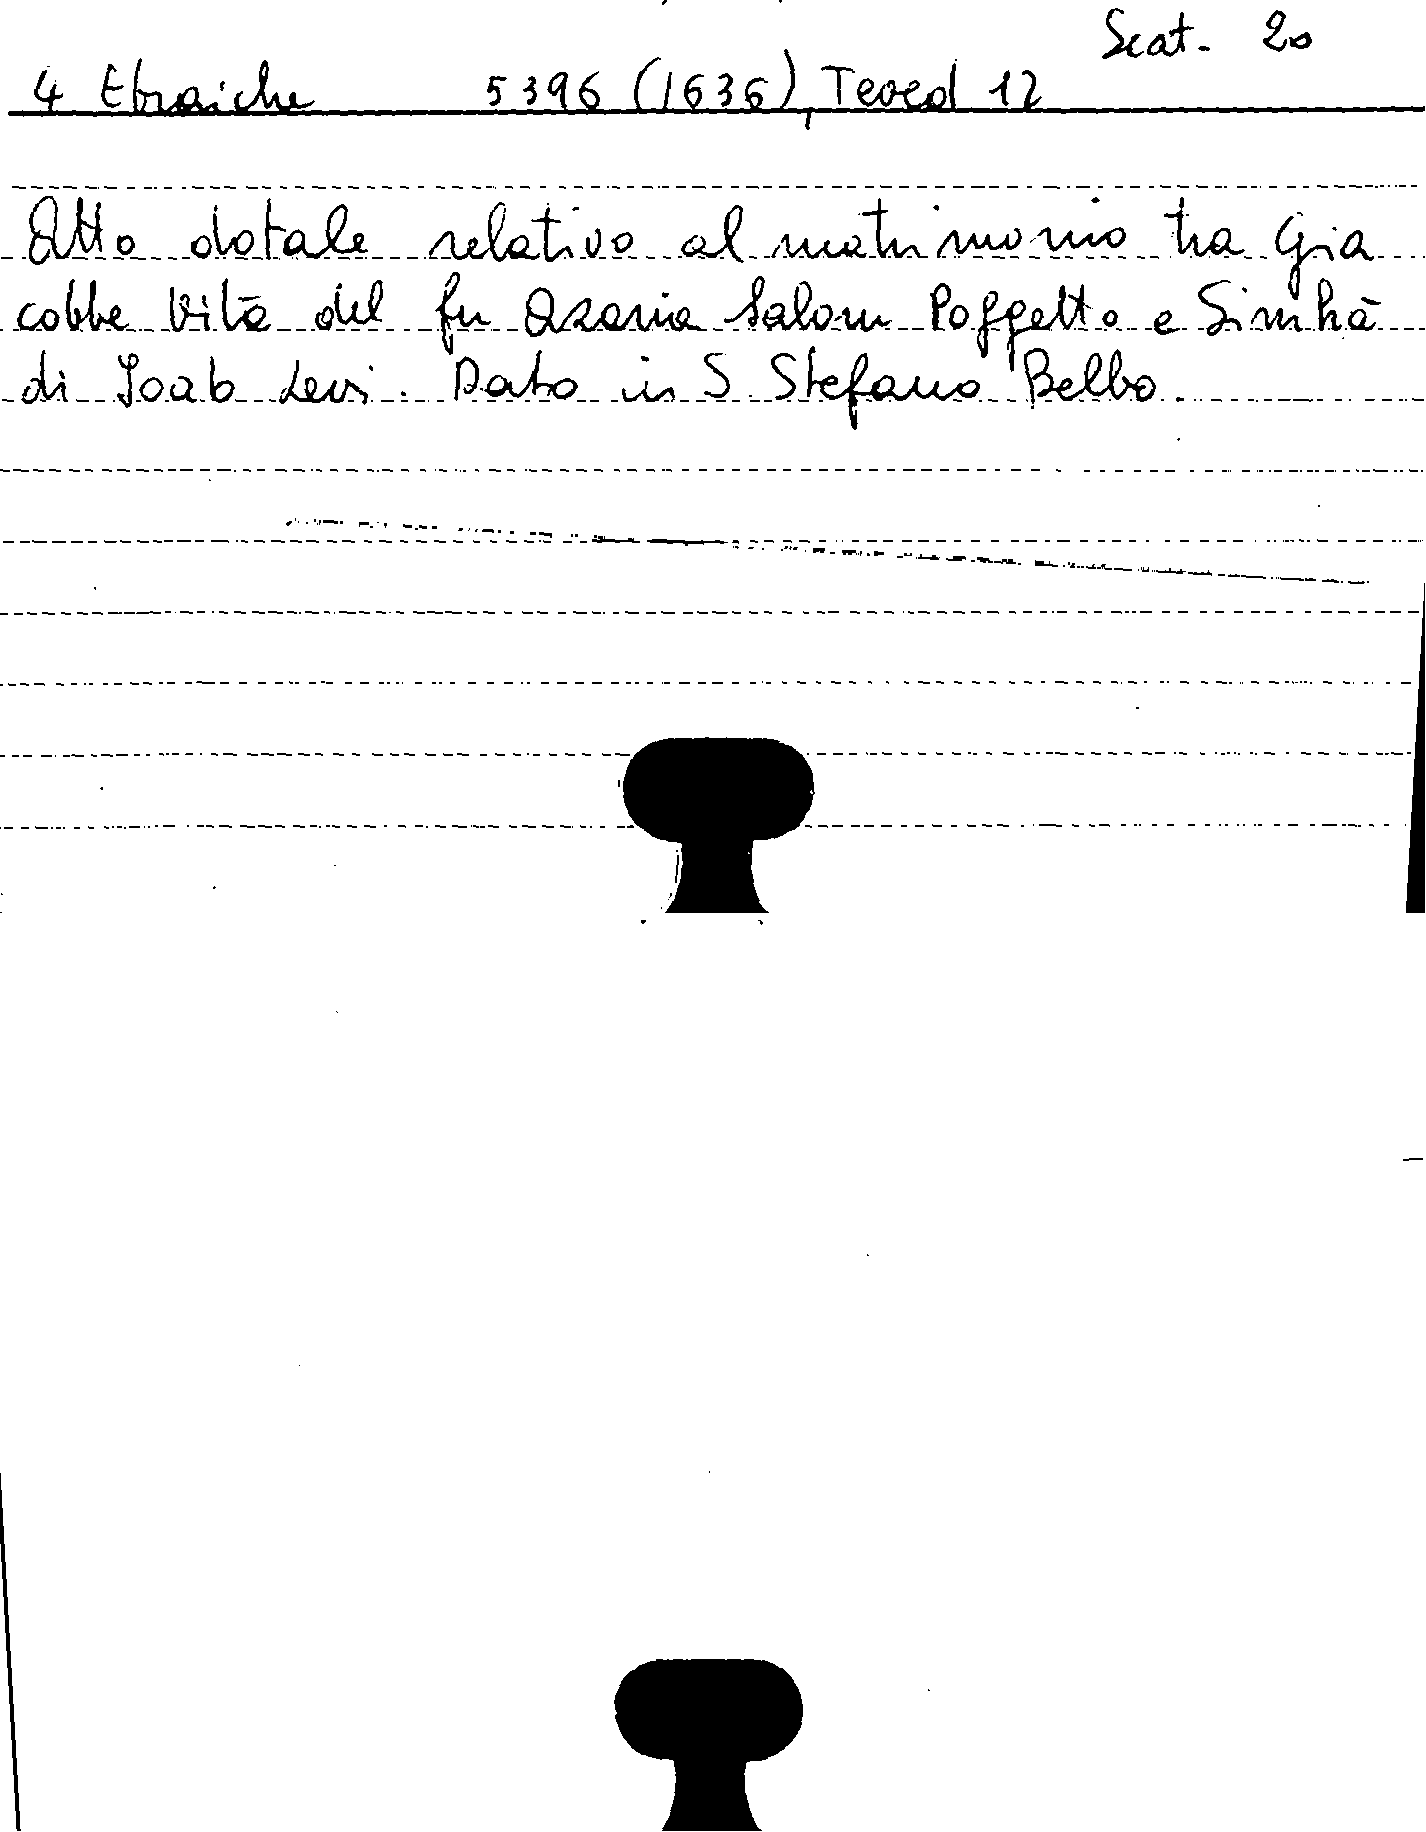 Scat. 20
4 Ebraiche 5396 (1636), Teved 12
Atto dotale relativo al matrimonio tra Gia
cobbe Vità del fu Azaria Salom Poggetto e Simhà
di Joab Levi. Dato in S Stefano Belbo.